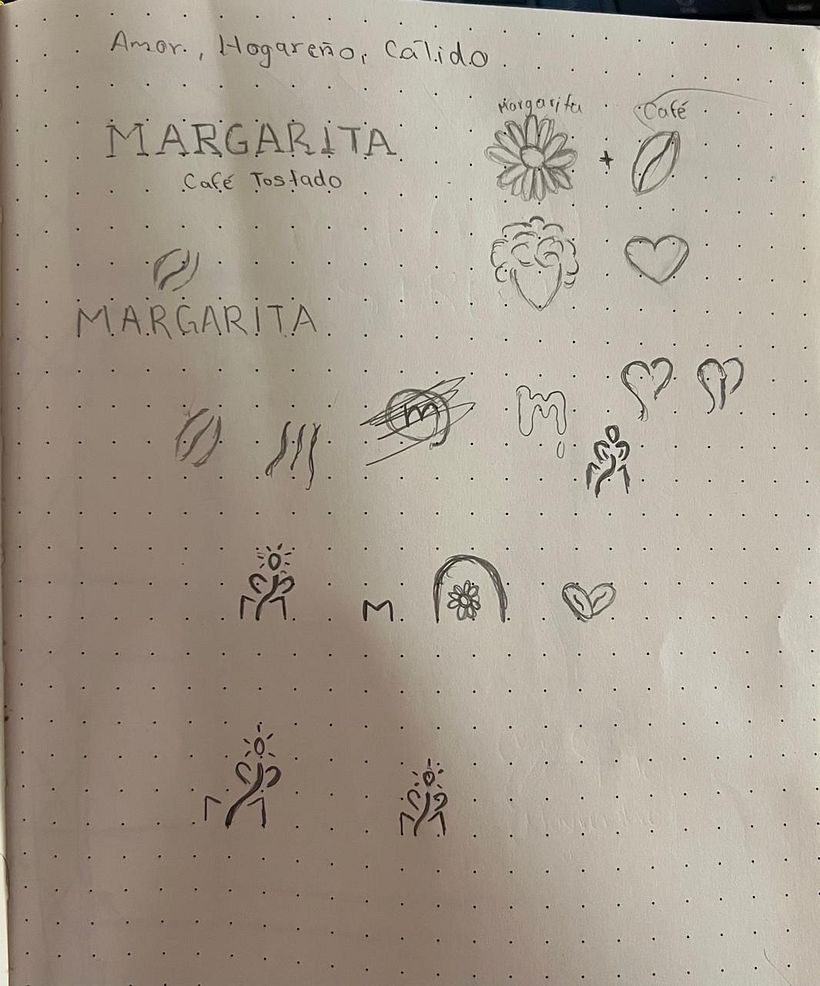 Amor, Hogareño, Cálido
MARGARITA
Café Tostado
Margarita
+
Café
MARGARITA
m
M
M